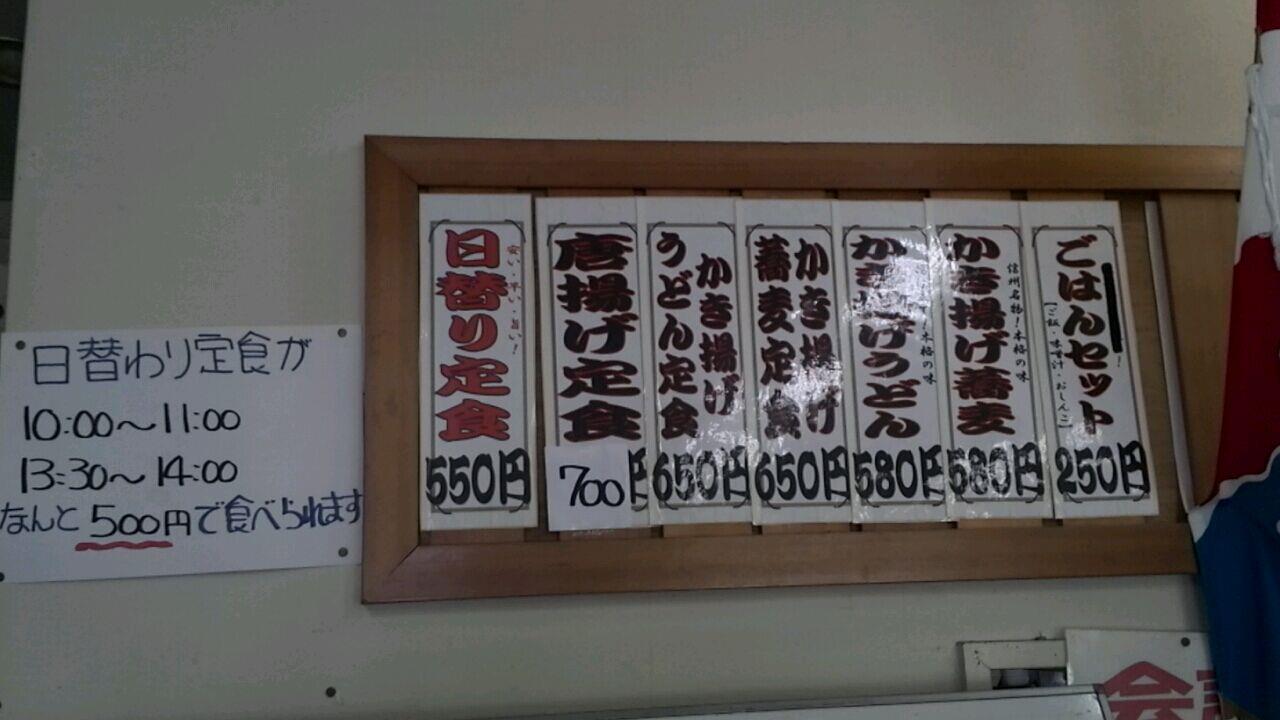 日替わり定食が
10:00〜11:00
13:30〜14:00
なんと500円で食べられます
日替り定食
550円
唐揚げ定食
700円
かき揚げ
うどん定食
650円
かき揚げ
蕎麦定食
650円
かき揚げうどん
本格の味
580円
かき揚げ蕎麦
信州名物!本格の味
580円
ごはんセット
【ご飯・味噌汁・おしんこ】
250円
会